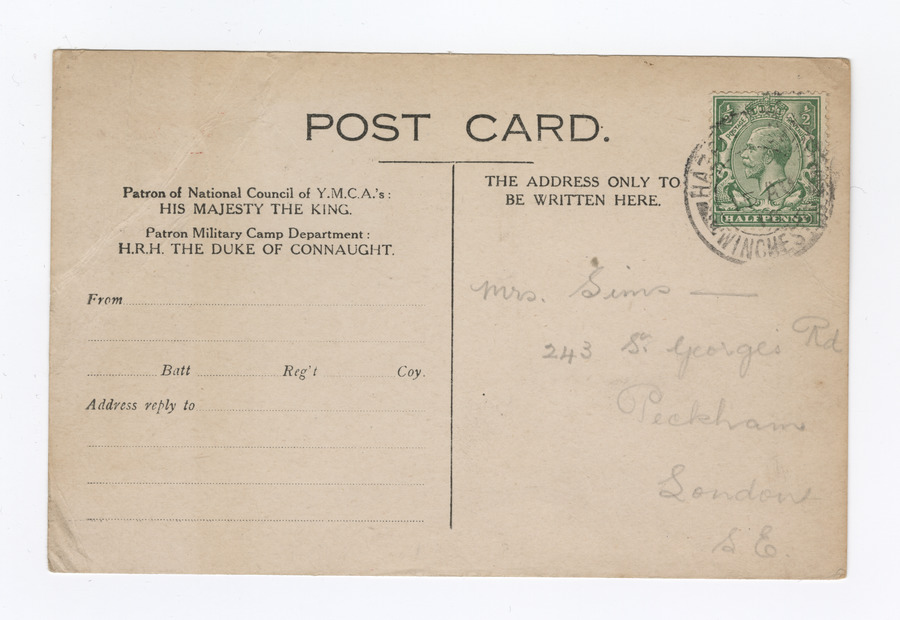 POST CARD.
Patron of National Council of Y.M.C.A.'s:
HIS MAJESTY THE KING.
Patron Military Camp Department:
H.R.H. THE DUKE OF CONNAUGHT.
From
Batt Reg't Coy.
Address reply to
THE ADDRESS ONLY TO
BE WRITTEN HERE.
½ ½
HALFPENNY
WINCHES
Mrs. Sims —
243 St. Georges Rd
Peckham
London
S E.